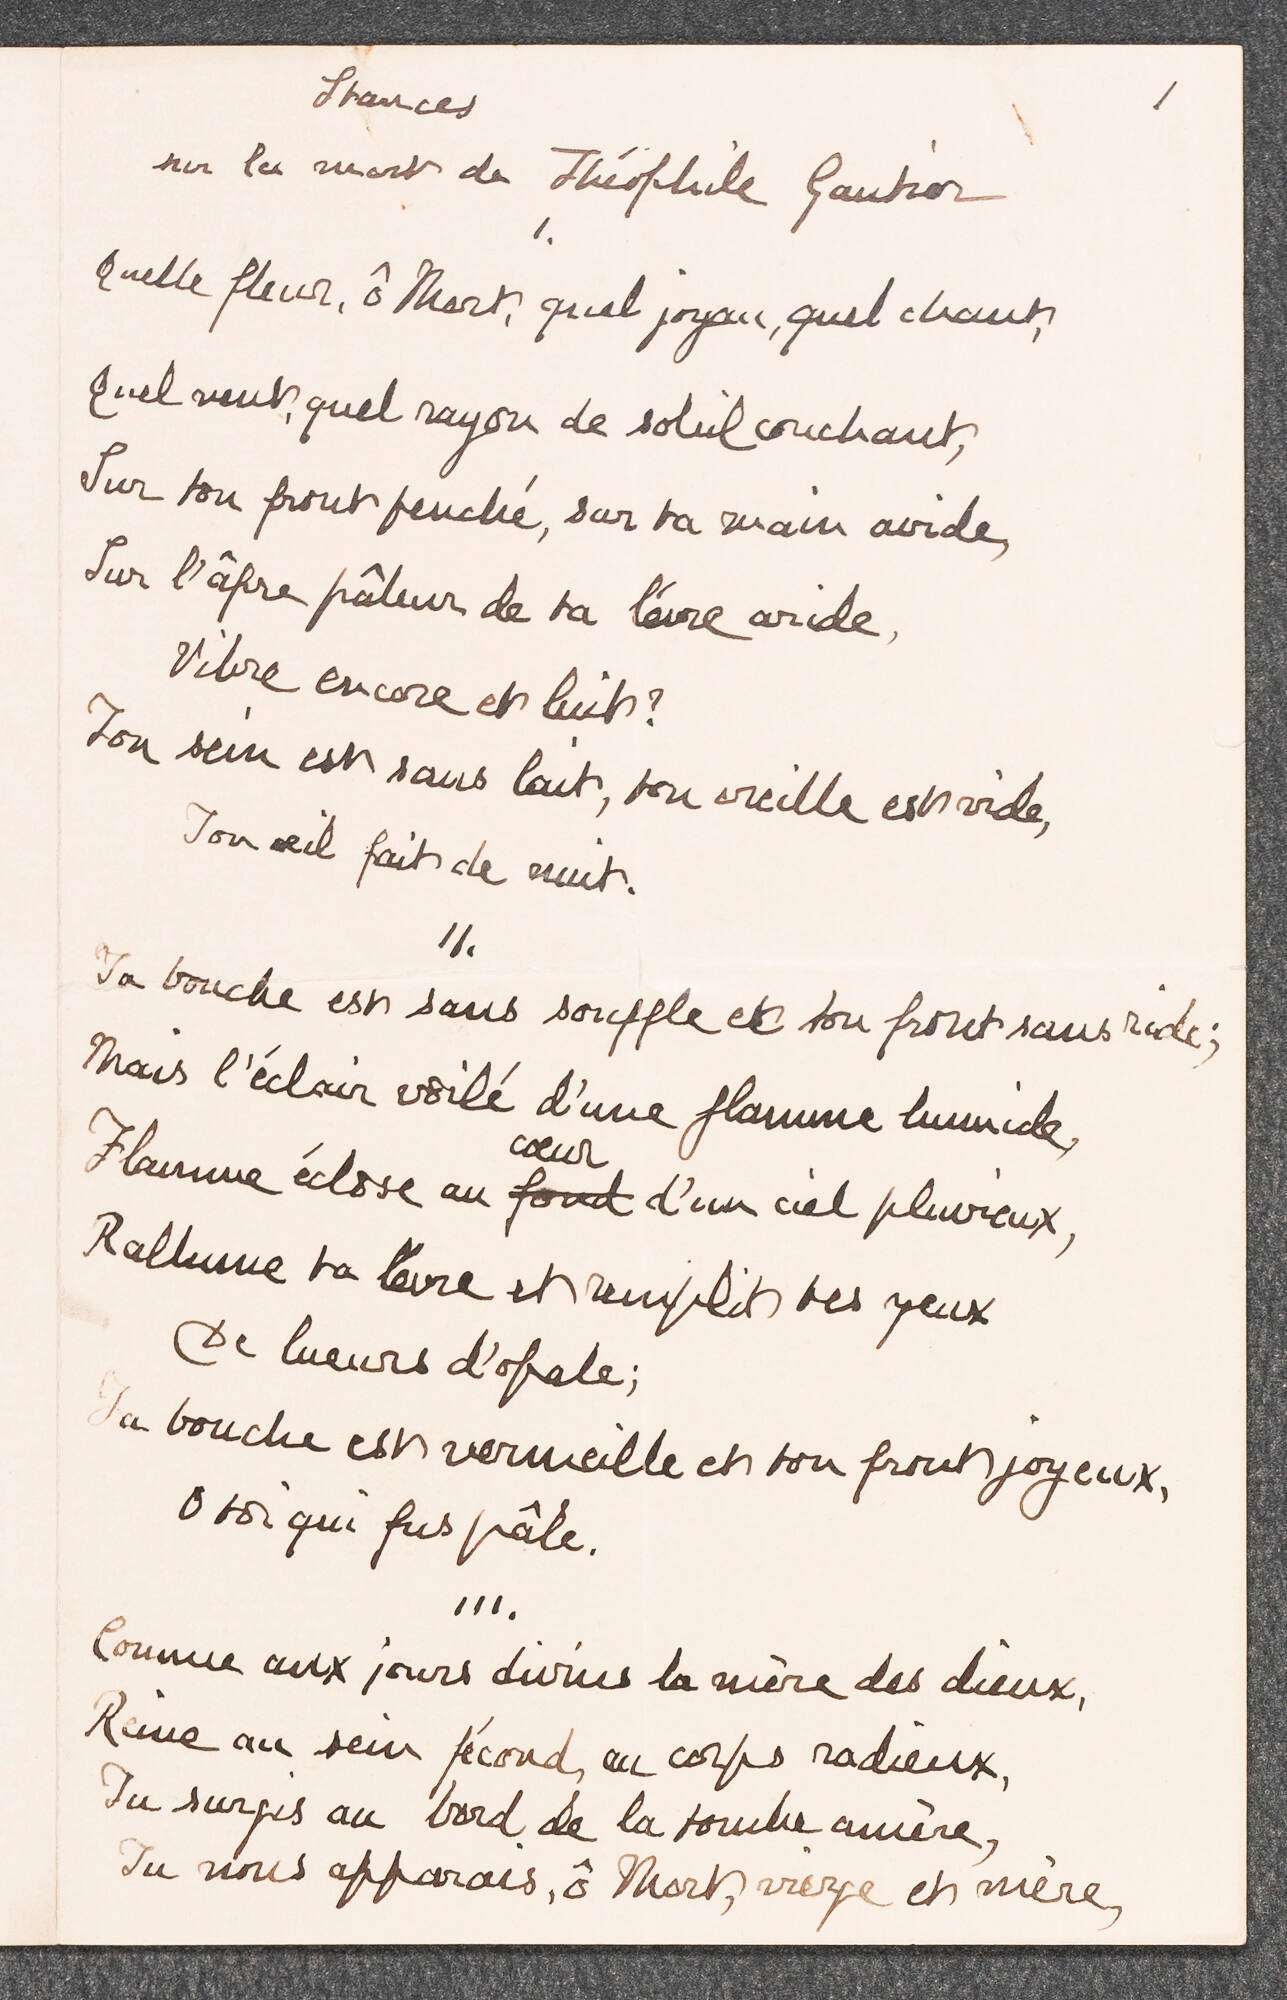 Stances
1
sur la mort de Théophile Gautier
I.
Quelle fleur, ô Mort, quel joyau, quel chant,
Quel vent, quel rayon de soleil couchant,
Sur ton front penché, sur ta main avide,
Sur l'âpre pâleur de ta lèvre aride,
Vibre encore et luit?
Ton sein est sans lait, ton oreille est vide,
Ton œil fait de nuit.
II.
Ta bouche est sans souffle et ton front sans ride;
Mais l'éclair voilé d'une flamme humide,
cœur
Flamme éclose au fond d'un ciel pluvieux,
Rallume ta lèvre et remplit tes yeux
De lueurs d'opale;
Ta bouche est vermeille et ton front joyeux,
O toi qui fus pâle.
III.
Comme aux jours divins la mère des dieux,
Reine au sein fécond, au corps radieux,
Tu surgis au bord de la tombe amère,
Tu nous apparais, ô Mort, vierge et mère,